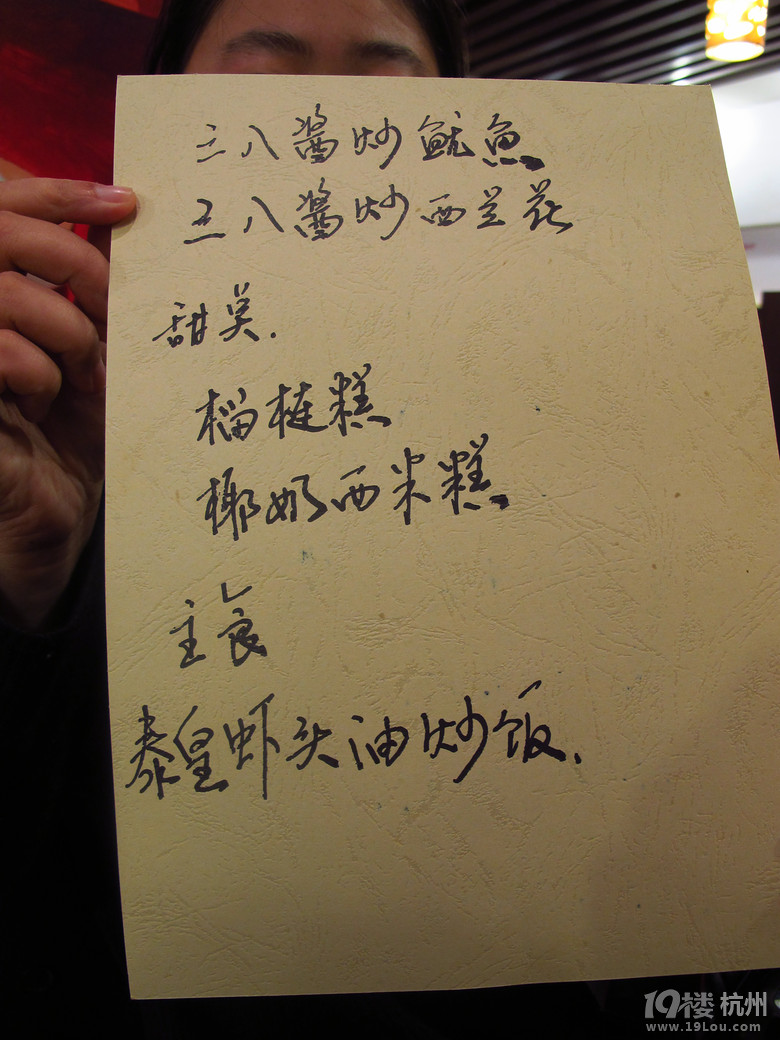 三八醬炒鱿魚
三八醬炒西兰花
甜品.
榴梿糕
椰奶西米糕
主食
泰皇虾头油炒饭.
19楼 杭州
www.19Lou.com